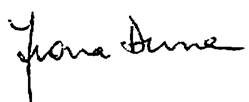 Fiona Dunne